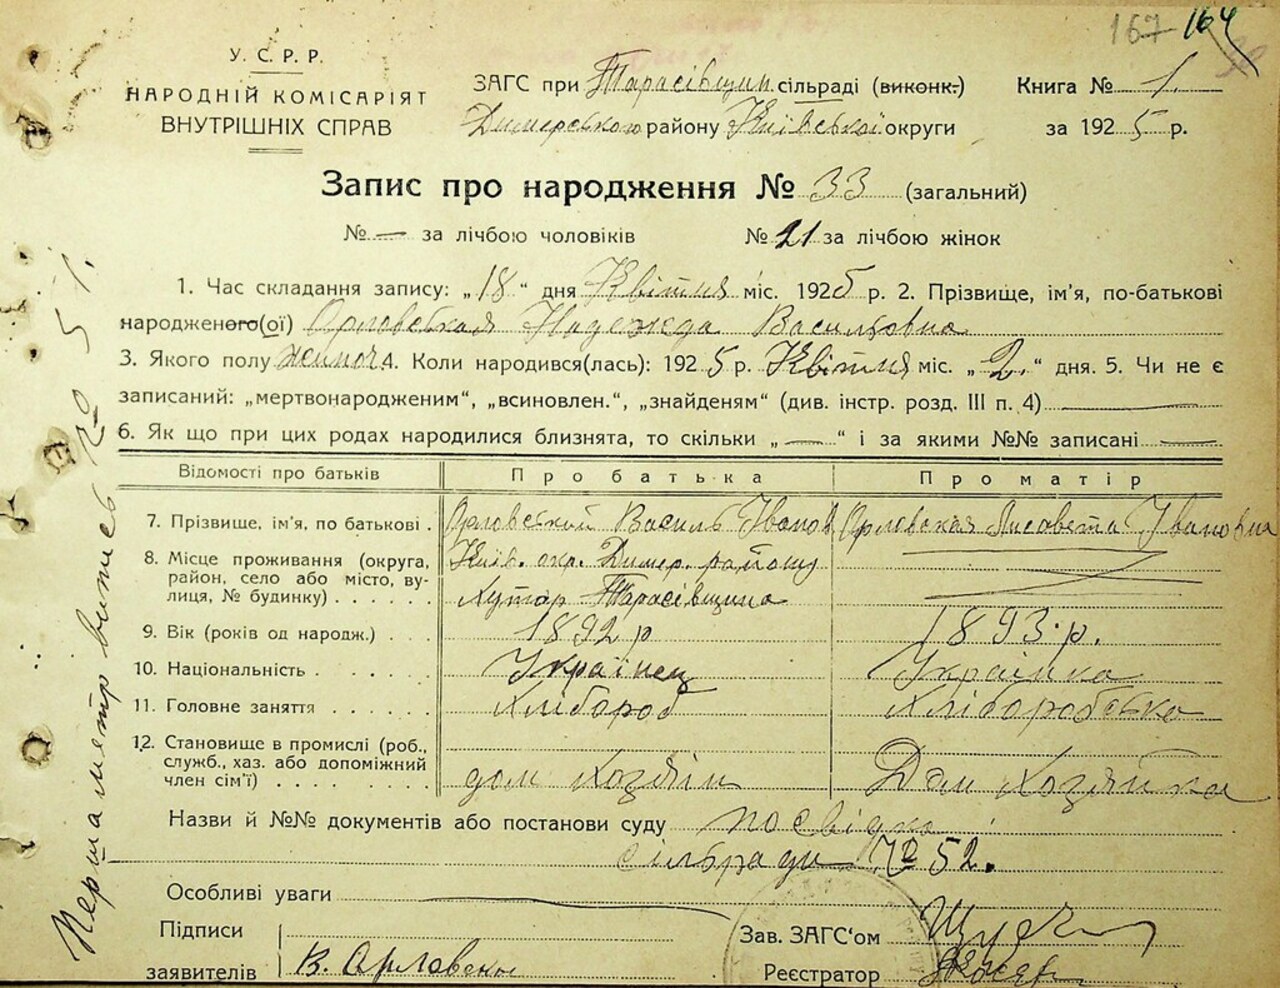 167 164
У. С. Р. Р.
НАРОДНІЙ КОМІСАРІЯТ
ВНУТРІШНІХ СПРАВ
ЗАГС при Тарасівщин сільраді (виконк.) Книга № 1.
Димерського району Київської округи за 1925 р.
Запис про народження № 33 (загальний)
№ — за лічбою чоловіків № 21 за лічбою жінок
1. Час складання запису: „18“ дня Квітня міс. 1925 р. 2. Прізвище, ім'я, по-батькові
народженого(ої) Орловская Надежда Васильовна
3. Якого полу жиноч 4. Коли народився(лась): 1925 р. Квітня міс. „2.“ дня. 5. Чи не є
записаний: „мертвонародженим“, „всиновлен.“, „знайденям“ (див. інстр. розд. III п. 4) —
6. Як що при цих родах народилися близнята, то скільки „—“ і за якими №№ записані —
Відомості про батьків Про батька Про матір
7. Прізвище, ім'я, по батькові . Орловский Василь Іванов Орловская Лисавета Івановна
8. Місце проживання (округа, район, село або місто, вулиця, № будинку) . . . . . . Київ. окр. Димер. району
Хутор Тарасівщина
9. Вік (років од народж.) . . . 1892 р 1893 р.
10. Національність . . . . . . Українец Українка
11. Головне заняття . . . . . . Хлібороб Хліборобська
12. Становище в промислі (роб., служб., хаз. або допоміжний член сім'ї) . . . . . . . . дом хозяін Дом Хозяйка
Назви й №№ документів або постанови суду посвідка
сільради № 52.
Особливі уваги —
Підписи
заявителів В. Орловски
Зав. ЗАГС'ом
Реєстратор
Перша метр витись 20 5 р.